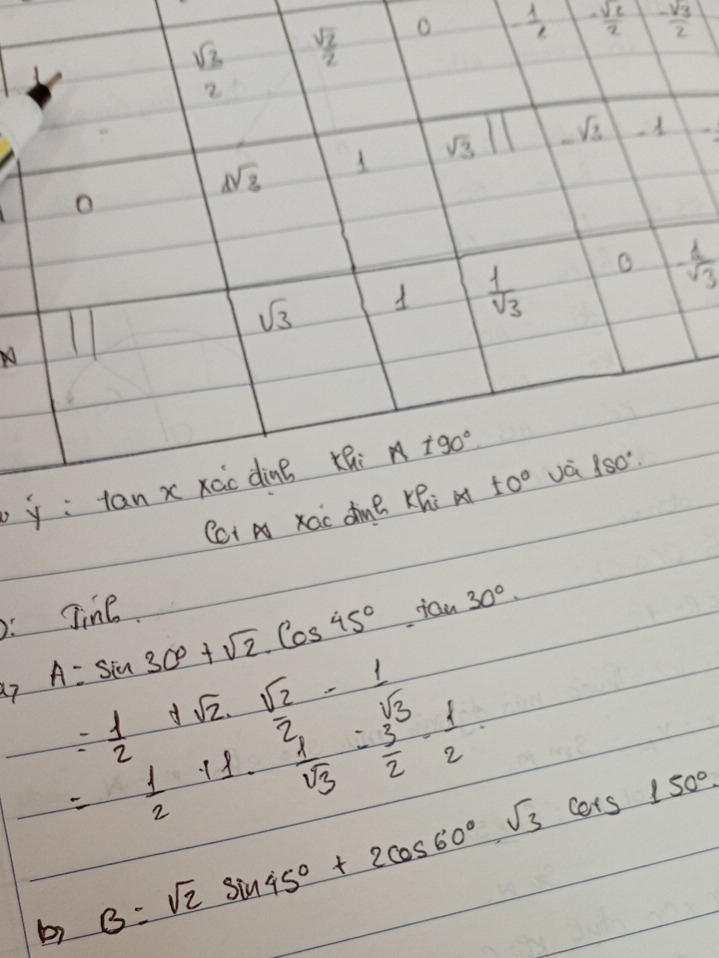 √3/2 √2/2 0 -1/2 -√2/2 -√3/2
0 1/√3 1 √3 || -√3 -1
|| √3 1 1/√3 0 -1/√3
ý : tan x xác định khi x ≠ 90°.
Cot x xác định khi x ≠ 0° và 180°.
Tính.
a, A = Sin 30° + √2. Cos 45° - tan 30°.
= 1/2 + √2. √2/2 - 1/√3
= 1/2 + 1 - 1/√3 = 3/2 - 1/2.
b, B = √2 Sin 45° + 2cos 60° √3 cos 150°.